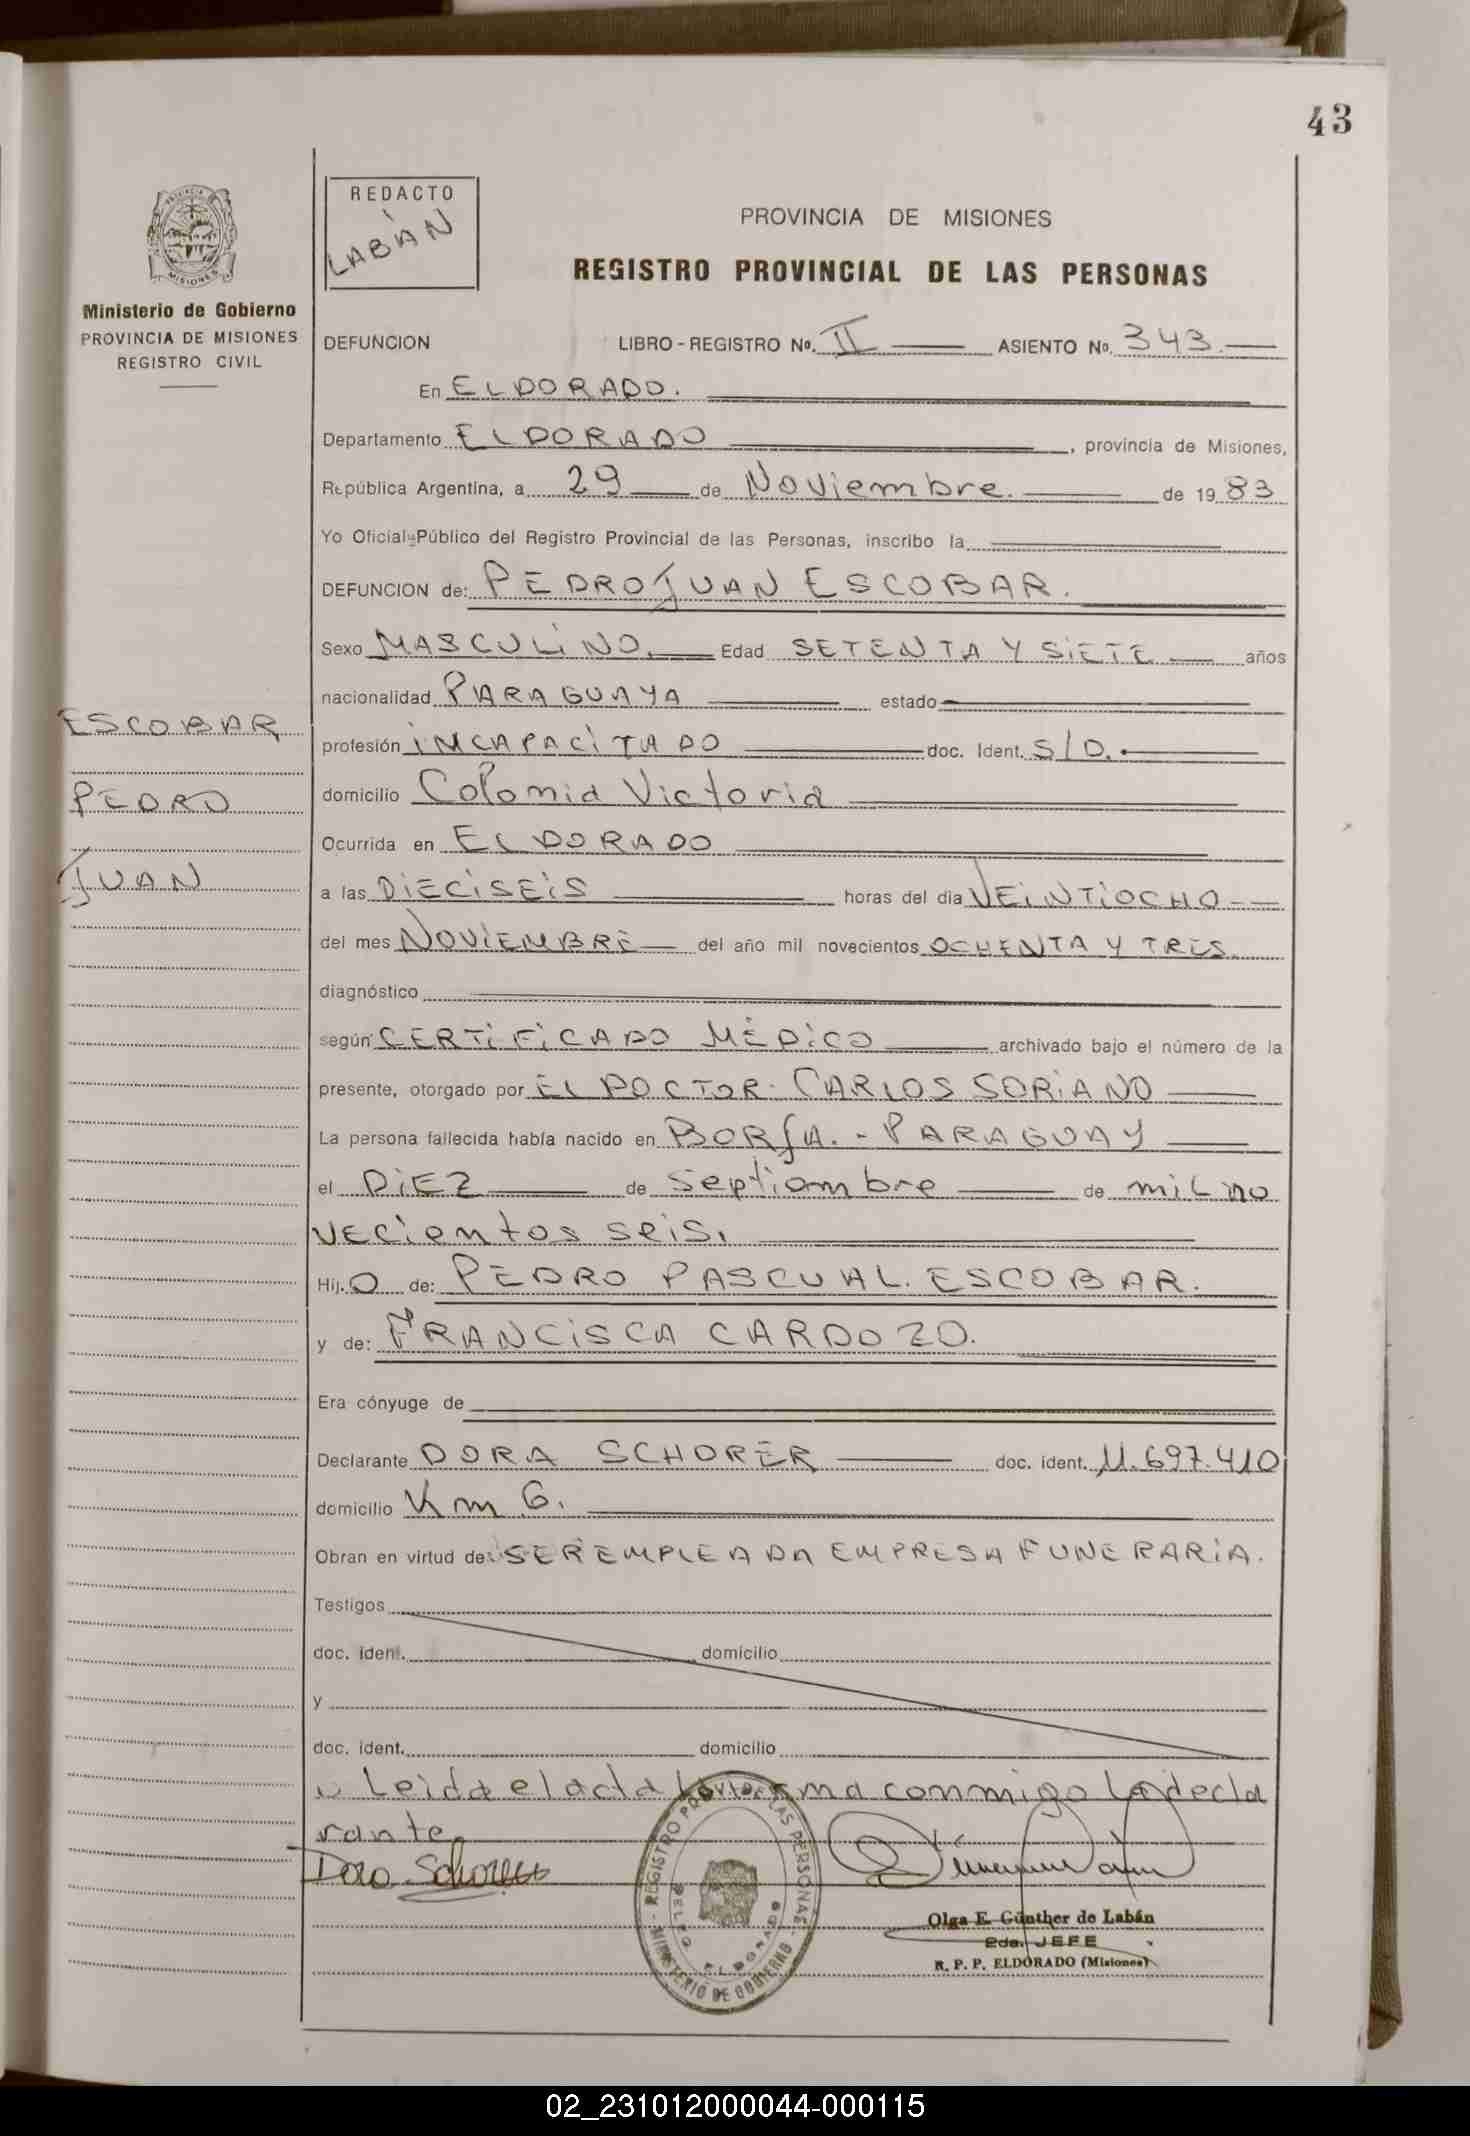 43
REDACTO
LABÁN
PROVINCIA DE MISIONES
REGISTRO PROVINCIAL DE LAS PERSONAS
PROVINCIA
MISIONES
Ministerio de Gobierno
PROVINCIA DE MISIONES
REGISTRO CIVIL
DEFUNCION LIBRO - REGISTRO Nº. II ASIENTO Nº. 343.
En ELDORADO.
Departamento ELDORADO, provincia de Misiones,
República Argentina, a 29 de Noviembre. de 19 83
Yo Oficial Público del Registro Provincial de las Personas, inscribo la
DEFUNCION de: PEDRO JUAN ESCOBAR.
Sexo MASCULINO. Edad SETENTA Y SiETE años
nacionalidad PARAGUAYA estado
ESCOBAR
profesión iNCAPACiTADO doc. Ident. S/D.
PEDRO
domicilio Colonia Victoria
Ocurrida en ELDORADO
JUAN
a las DiECiSEiS horas del día VEiNTiOCHO --
del mes NOViEMBRE del año mil novecientos OCHENTA Y TRES.
diagnóstico
según CERTiFiCADO MÉDiCO archivado bajo el número de la
presente, otorgado por EL DOCTOR. CARLOS SORiANO
La persona fallecida había nacido en BORJA. - PARAGUAY
el DiEZ de septiembre de miL no
VECientos seis.
Hij. O de: PEDRO PASCUAL. ESCOBAR.
y de: FRANCiSCA CARDOZO.
Era cónyuge de
Declarante DORA SCHORER doc. ident. 11.697.410
domicilio Km 6.
Obran en virtud de: SER EMPLEADA EMPRESA FUNERARiA.
Testigos
doc. ident. domicilio
y
doc. ident. domicilio
Leida el acta conmigo la decla
rante.
Dora Schorer
REGISTRO PROV. DE LAS PERSONAS
MINISTERIO DE GOBIERNO
ELDORADO
Olga E. Günther de Labán
2da. JEFE
R. P. P. ELDORADO (Misiones)
02_231012000044-000115